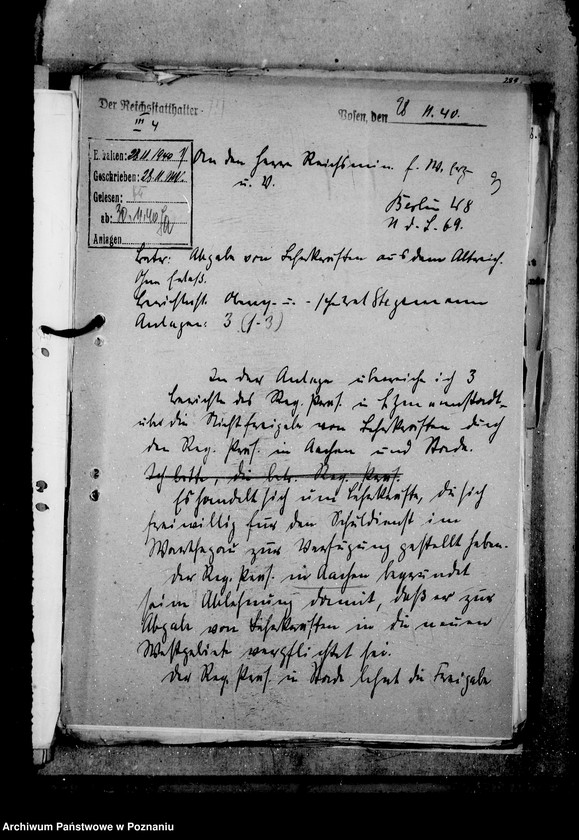 289
Der Reichsstatthalter
III 4
Posen, den 28 11. 40.
Erhalten: 28.11.1940
Geschrieben: 28.11.
Gelesen:
ab: 30.11.40
Anlagen
An den Herrn Reichsmin. f. W. Erz-
u. V.
Berlin W 8
U. d. L. 69.
Betr: Abgabe von Lehrkräften aus dem Altreich.
Ohne Erlaß.
Berichterst. Oberreg.- u. -schulrat Stegemann
Anlagen: 3 (1-3)
In der Anlage überreiche ich 3
Berichte des Reg. Präs. in Litzmannstadt
über die Nichtfreigabe von Lehrkräften durch
den Reg. Präs. in Aachen und Stade.
Ich bitte, die betr. Reg. Präs.
Es handelt sich um Lehrkräfte, die sich
freiwillig für den Schuldienst im
Warthegau zur Verfügung gestellt haben.
Der Reg. Präs. in Aachen begründet
seine Ablehnung damit, daß er zur
Abgabe von Lehrkräften in die neuen
Westgebiete verpflichtet sei.
Der Reg. Präs. in Stade lehnt die Freigabe
Archiwum Państwowe w Poznaniu